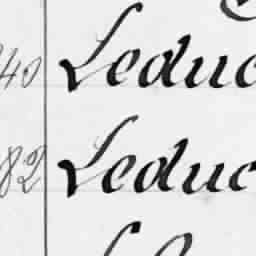 40 Leduc
82 Leduc